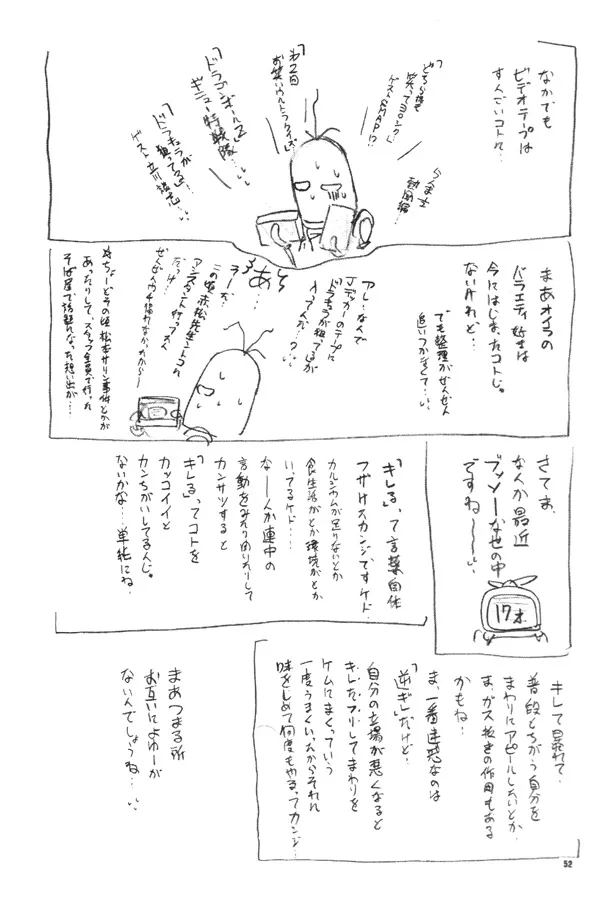 なかでも
ビデオテープは
すんごいコトに…
どちら様も
笑ってヨロシク
ゲストSMAP!?
「第2回
お笑いウルトラクイズ」
「ドラゴンボールZ
ギニュー特戦隊…
「ドラキュラが
狙ってる」
まあオイラの
バラエティ好きは
今にはじまったコトじゃ
ないけれど…
でも整理がぜんぜん
追いつかなくて…
アレーなんで
Jデッカーのテープに
ドラキュラが狙ってるが
入ってんだ…?
あっ…
この頃赤松先生ントコに
アシスタント行ってて
ちょーどその頃松本サリン事件とかが
あったりして、スタッフ全員で行った
そば屋で話題になった想い出が…
さてま、
なんか最近
ブッソーな世の中
ですね〜〜
17才
「キレる」って言葉自体
フザけたカンジですケド、
カルシウムが足りないとか
食生活がとか環境がとか
いってるケド…
な〜んか連中の
言動をみたり聞いたりして
カンサツすると
「キレる」ってコトを
カッコイイと
カンちがいしてるんじゃ
ないかな…単純にね…
キレて暴れて、
普段とちがう自分を
まわりにアピールしたいとか、
まガス抜きの作用もある
かもね…
ま、一番迷惑なのは
「逆ギレ」だけど…
自分の立場が悪くなると
キレたフリしてまわりを
ケムにまくっていう
一度うまくいったからそれに
味をしめて何度もやるってカンジ…
まあつまる所
お互いによゆーが
ないんでしょうね…
52